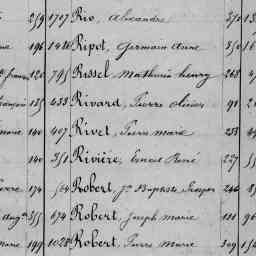 259 1707 Rio, Alexandre 370
196 1426 Ripot, Germain Anne 350
120 785 Rissel Mathurin henry 268
135 433 Rivard, Pierre olivier 91
140 407 Rivet, Pierre marie 238
140 350 Rivière, Ernest René 227
174 564 Robert, Jn Baptiste Prosper 246
355 674 Robert, Joseph marie 111
199 1028 Robert, Pierre Marie 309